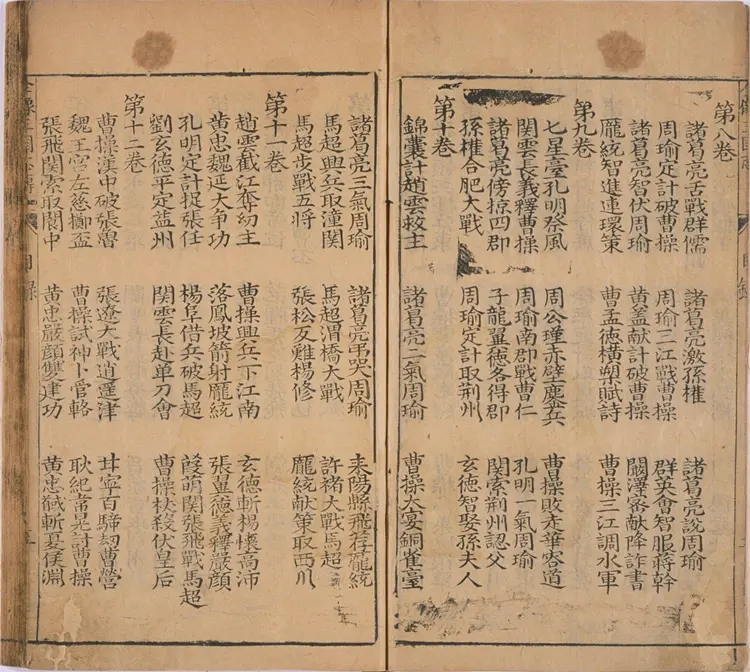 第八卷
諸葛亮舌戰群儒 諸葛亮激孫權 諸葛亮說周瑜
周瑜定計破曹操 周瑜三江戰曹操 群英會智服蔣幹
諸葛亮智伏周瑜 黃蓋献計破曹操 闞澤密献降詐書
龐統智進連環策 曹孟德橫槊賦詩 曹操三江調水軍
第九卷
七星臺孔明祭風 周公瑾赤壁鏖兵 曹操敗走華容道
関雲長義釋曹操 周瑜南郡戰曹仁 孔明一氣周瑜
諸葛亮傍掠四郡 子龍翼德各得郡 関索荆州認父
孫權合肥大戰 周瑜定計取荆州 玄德智娶孫夫人
第十卷
錦囊計趙雲救主 諸葛亮二氣周瑜 曹操大宴銅雀臺
諸葛亮三氣周瑜 諸葛亮弔哭周瑜 耒陽縣飛荐龐統
馬超興兵取潼関 馬超渭橋大戰 許褚大戰馬超
馬超步戰五将 張松反難楊修 龐統献策取西川
第十一卷
趙雲截江奪幼主 曹操興兵下江南 玄德斬楊懷高沛
黃忠魏延大争功 落鳳坡箭射龐統 張翼德義釋嚴顏
孔明定計捉張任 楊阜借兵破馬超 葭萌関張飛戰馬超
劉玄德平定益州 関雲長赴單刀會 曹操杖殺伏皇后
第十二卷
曹操漢中破張魯 張遼大戰逍遥津 甘寧百騎劫曹營
魏王宫左慈擲盃 曹操試神卜管輅 耿紀韋晃討曹操
張飛関索取閬中 黃忠嚴顏雙建功 黃忠馘斬夏侯淵